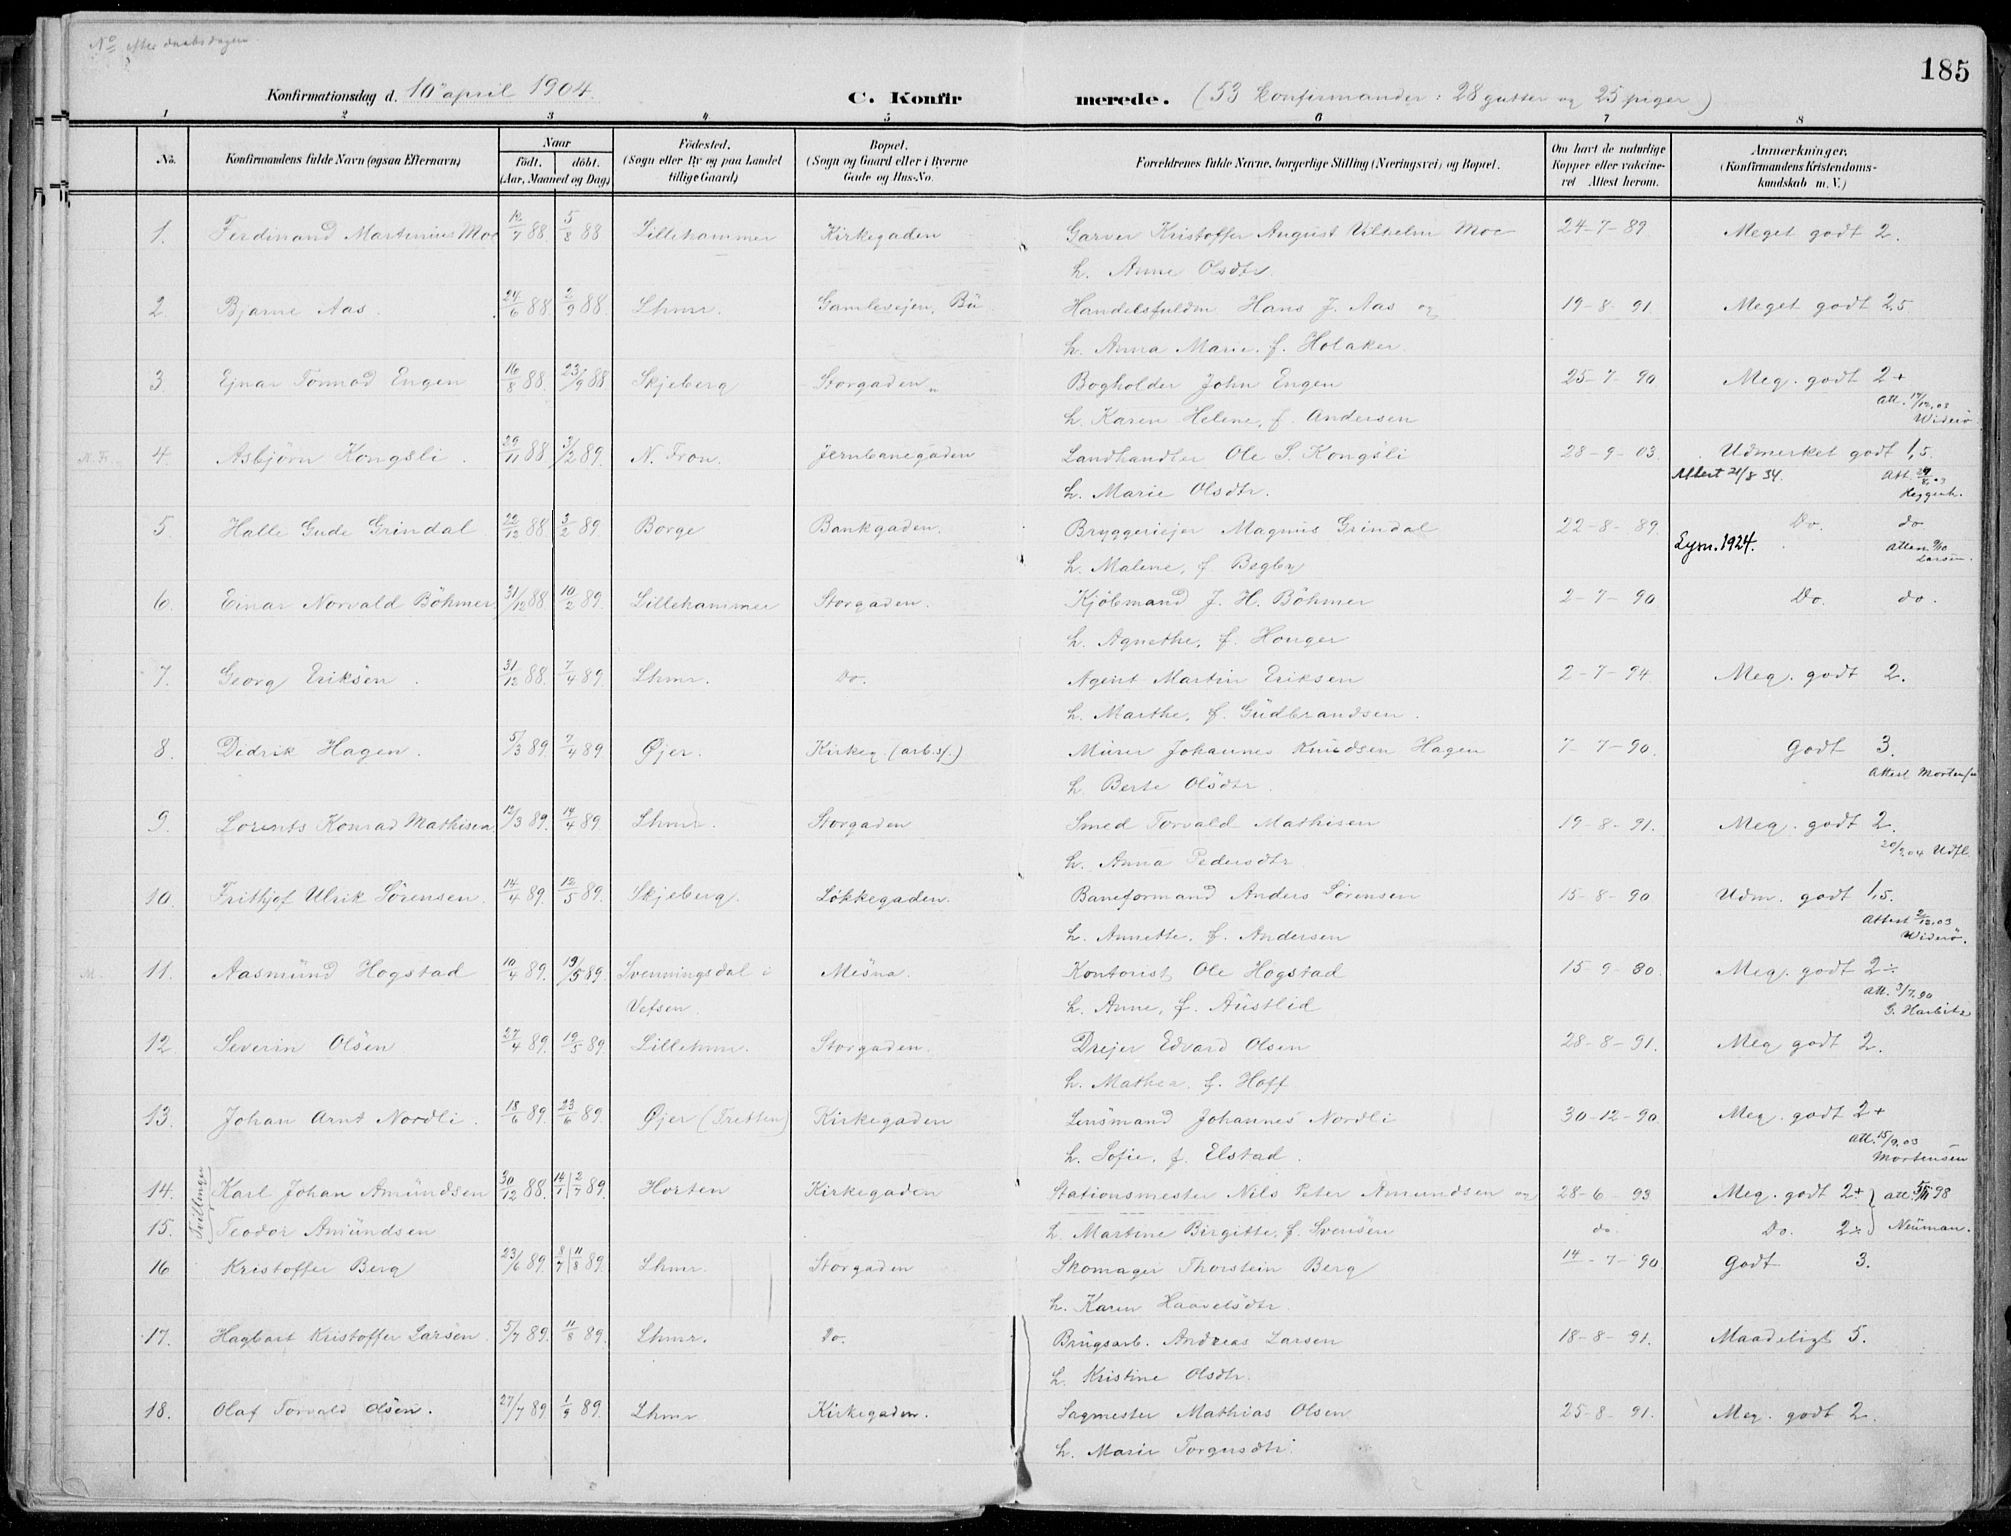 185
No efter daabsdagen
Konfirmationsdag d. 10 april 1904. C. Konfirmerede. (53 konfirmander: 28 gutter og 25 piger)
1 2 3 4 5 6 7 8
No. Konfirmandens fulde Navn (ogsaa Efternavn) Naar födt. döbt. (Aar, Maaned og Dag) Födested. (Sogn eller By og paa Landet tillige Gaard) Bopæl. (Sogn og Gaard eller i Byerne Gade og Hus-No. Forældrenes fulde Navne, borgerlige Stilling (Næringsvei) og Bopæl. Om havt de naturlige Kopper eller vakcineret Attest herom. Anmærkninger. (Konfirmandens Kristendomskundskab m. V.)
1. Ferdinand Martinius Moe 12/7 88 5/8 88 Lillehammer Kirkegaden Garver Kristoffer August Vilhelm Moe 24-7-89 Meget godt 2.
h. Anne Olsdtr.
2 Bjarne Aas. 24/6 88 2/9 88 Lhmr. Gamlevejen, Bü Handelsfuldm Hans J. Aas og 19-8-91 Meget godt 2,5
h. Anna Marie, f. Holaker.
3. Ejnar Tormod Engen 16/8 88. 23/9 88 Skjeberg Storgaden Bogholder John Engen 25-7-90 Meg. godt 2+
h. Karen Helene, f. Andersen Att. 17/12.03 Widerö
N. Fr. 4 Asbjörn Kongsli. 29/11 88 3/2 89. N. Fron. Jernbanegaden Landhandler Ole S. Kongsli 28-9-03. Udmerket godt 1,5.
h. Marie Olsdtr. Attest 21/8 34. Att. 29/8.03 Heggenh.
5. Halle Gude Grindal 22/12 88 3/2 89. Borge Bankgaden. Bryggeriejer Magnus Grindal 22-8-89 Do. do
h. Malene, f. Begby Lysn. 1924. Atten. 9/10 Larsen.
6. Einar Norvald Böhmer 31/12 88 10/2 89. Lillehammer Storgaden. Kjöbmand J. H. Böhmer 2-7-90 Do. do.
h. Agnethe, f. Honger
7. Georg Eriksen. 31/12 88. 7/4 89 Lhmr. Do. Agent Martin Eriksen 2-7-94 Meg. godt 2.
h. Marthe, f. Gudbrandsen.
8. Dedrik Hagen. 5/3 89 7/4 89 Øjer. Kirkeg (arb.sf.) Murer Johannes Knudsen Hagen 7-7-90. Godt 3.
h Berte Olsdtr. Attest Mortensen
9. Lorents Konrad Mathisen 12/3 89. 14/4 89 Lhmr. Storgaden Smed Torvald Mathisen 19-8-91. Meg. godt 2.
h. Anna Pedersdtr 20/9.04 Udfl.
10. Frithjof Ulrik Sörensen. 14/4 89. 12/5 89. Skjeberg. Løkkegaden. Baneformand Anders Sörensen 15-8-90 Udm. godt 1,5.
h. Annette, f. Andersen Attest 2/12.03 Widerö.
M. 11. Aasmund Hogstad 10/4 89. 19/5 89. Svenningsdal i Mesna. Kontorist Ole Hogstad 15-9-80. Meg. godt 2÷
Vefsen h. Anne, f. Austlid Att. 3/7.90 G. Harbitz
12. Severin Olsen 27/4 89. 19/5 89. Lillehmr. Storgaden. Drejer Edvard Olsen 28-8-91. Meg godt 2.
h. Mathea, f. Hoff
13. Johan Arnt Nordli. 18/6 89. 23/6 89. Øjer (Tretten) Kirkegaden Lensmand Johannes Nordli 30-12-90. Meg. godt 2+
h. Sofie, f. Elstad. Att. 15/9.03 Mortensen
Tvillinger
14. Karl Johan Amundsen 30/12 88. 14/1 | 2/7 89. Horten Kirkegaden Stationsmester Nils Peter Amundsen og 28-6-93 Meg. godt 2+ Att. 5/11 98
15. Teodor Amundsen h. Martine Birgitte, f. Svensen do. Do. 2÷ Neuman.
16 Kristoffer Berg 23/6 89. 8/7 | 11/8 89. Lhmr. Storgaden Skomager Thorstein Berg 14-7-90 Godt 3.
h. Karen Haavelsdtr.
17. Hagbart Kristoffer Larsen. 5/7 89. 11/8 89. Lhmr. Do. Brugsarb. Andreas Larsen 18-8-91. Maadeligt 5.
h. Kristine Olsdtr.
18. Olaf Torvald Olsen. 27/7 89 1/9 89. Lhmr Kirkegaden. Sagmester Mathias Olsen 25-8-91. Meg. godt 2.
h. Marie Torgersdtr.